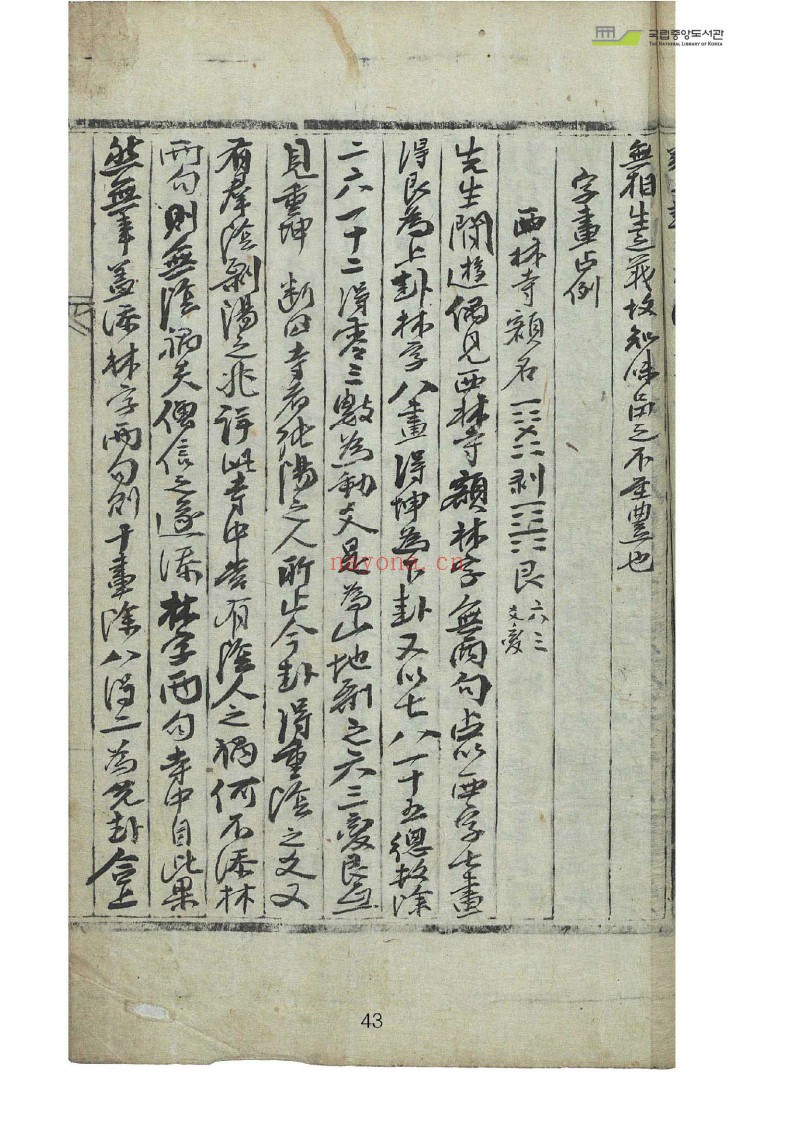 국립중앙도서관
THE NATIONAL LIBRARY OF KOREA
無相生之義故知味需之不至豊也
字畫占例
西林寺額名 剥 艮 六三爻変
先生閒遊偶見西林寺額林字無兩勾占以西字七畫
得艮為上卦林字八畫得坤為下卦又以七八一十五總数除
二六一十二得零三數為動爻是為山地剥之六三变艮互
見重坤 断曰寺者純陽之人所止今卦得重陰之爻又
有群陰剝陽之兆詳此寺中當有陰人之禍何不添林
兩勾則無陰禍矣僧信之遂添林字兩勾寺中自此果
然無事盖添林字兩勾則十畫除八得二為兌卦合上
nayona.cn
43